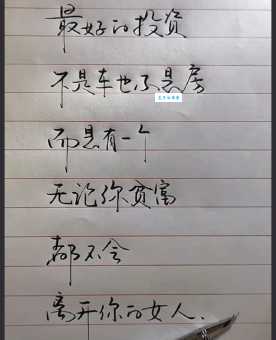 最好的投资
不是车也不是房
而是有一个
无论你贫富
都不会
离开你的女人.